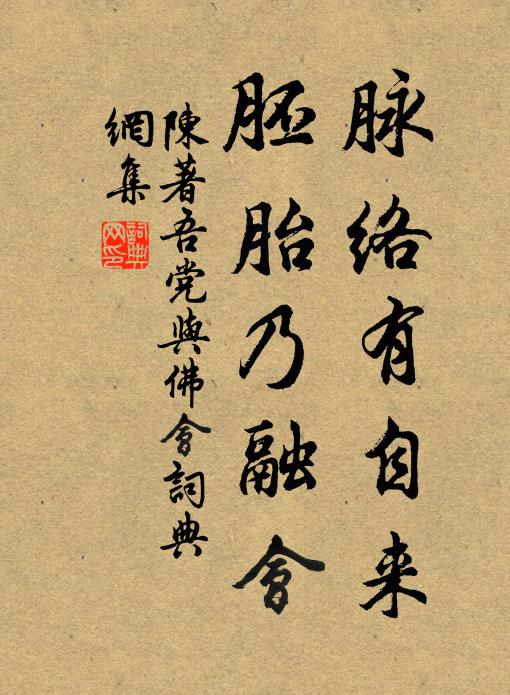 脉络有自来
胚胎乃融會
陳著吾党與佛會詞典
網集
詞典
网印